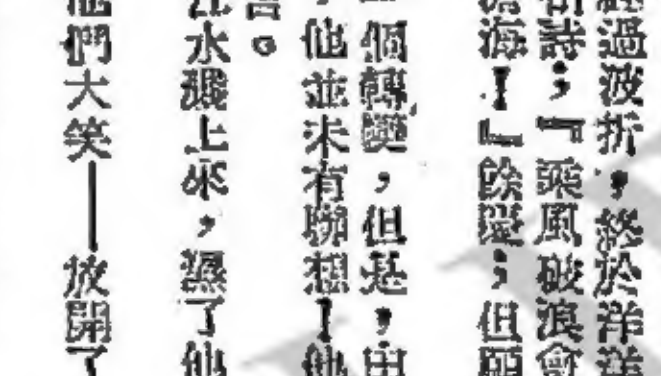 經過波折，終於洋洋
詩；『乘風破浪會
滄海！』餘　；但願
個轉變，但是，由
他並未有聯想！他
言。
水濺上來，濕了他
他們大笑——放開了